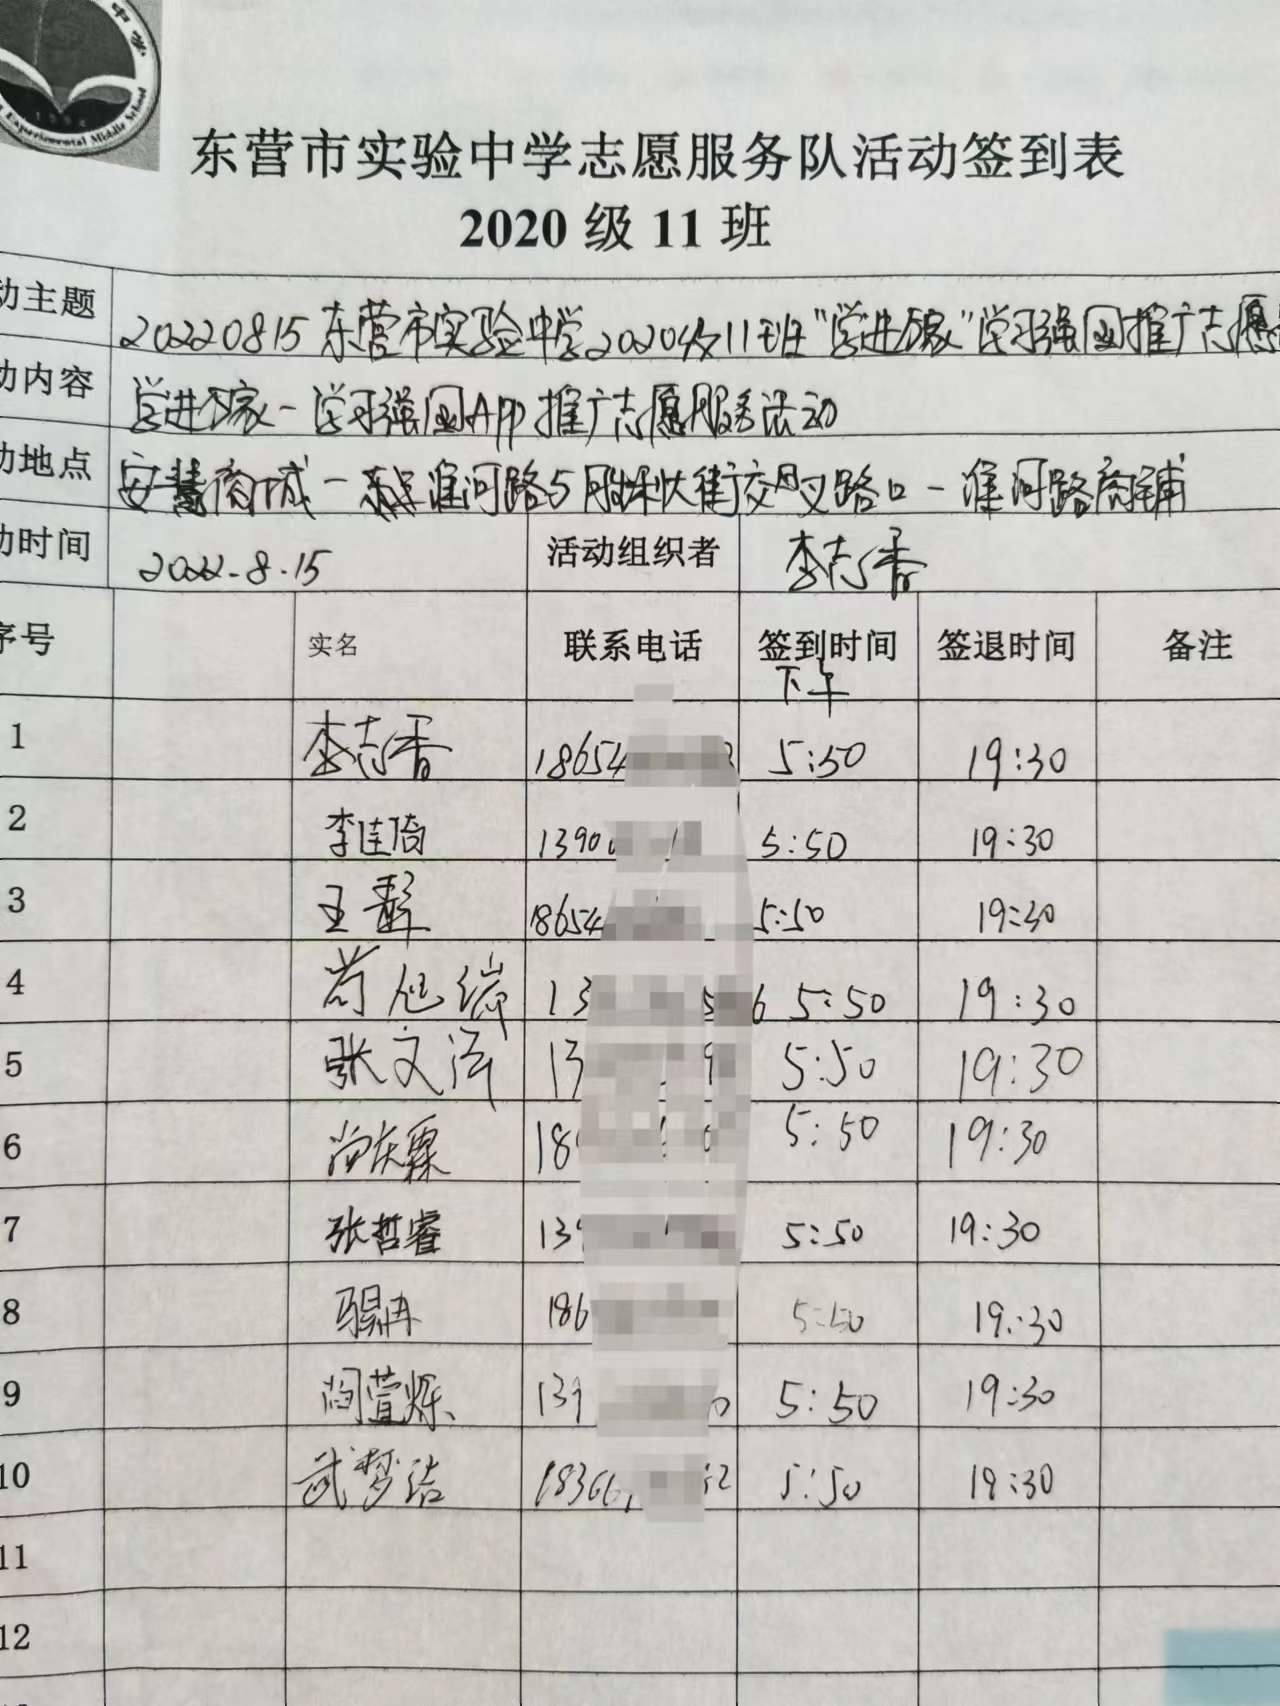 中学
Experimental Middle School
东营市实验中学志愿服务队活动签到表
2020 级 11 班
动主题 20220815东营市实验中学2020级11班“学进万家”学习强国推广志愿
动内容 学进万家－学习强国App推广志愿服务活动
动地点 安慧商城－淮河路与胜利大街交叉路口－淮河路商铺
动时间 2022.8.15 活动组织者 李志香
序号 实名 联系电话 签到时间 签退时间 备注
下午
1 李志香 18654 5:50 19:30
2 李佳倚 1390 5:50 19:30
3 王静 18654 5:50 19:30
4 苟旭瑞 13 6 5:50 19:30
5 张文泽 13 9 5:50 19:30
6 尚庆霖 18 5:50 19:30
7 张哲睿 139 5:50 19:30
8 186 5:50 19:30
9 阎萱烁 139 0 5:50 19:30
10 武梦洁 18366 2 5:50 19:30
11
12